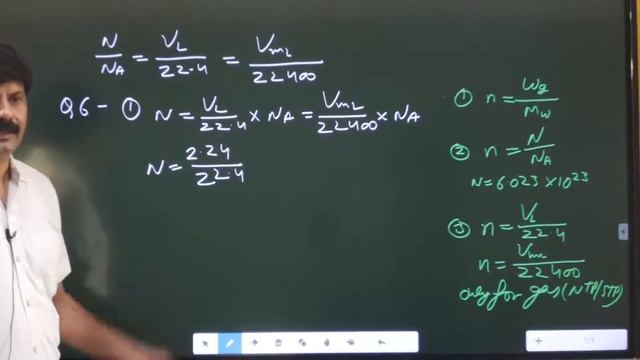 N/N_A = V_L/22.4 = V_mL/22400
Q6 - ① N = V_L/22.4 × N_A = V_mL/22400 × N_A
N = 2.24/22.4
① n = W_g/M_W
② n = N/N_A
N = 6.023 × 10^23
③ n = V_L/22.4
n = V_mL/22400
only for gas (NTP/STP)
1/1